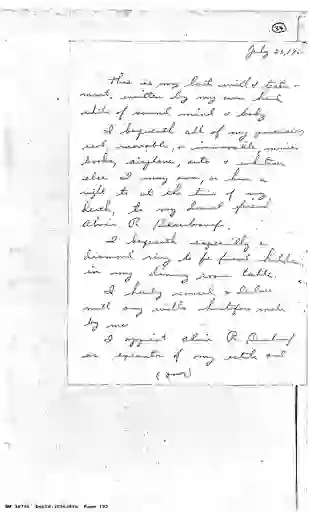 24
July 23, 19
This is my last will & testa-
ment, written by my own hand
while of sound mind & body
I bequeath all of my possessions,
real, movable, & immovable monies
books, airplane, auto & whatever
else I may own, or have a
right to at the time of my
death, to my friend
Alvin R. Beauboeuf.
I bequeath especially a
diamond ring to be found hidden
in my dining room table.
I hereby cancel & declare
null any wills heretofore made
by me
I appoint Alvin R. Beauboeuf
as executor of my estate and
(over)